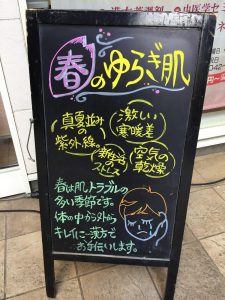 春のゆらぎ肌
真夏並みの紫外線
激しい寒暖差
新生活ストレス
空気の乾燥
春は肌トラブルの
多い季節です。
体の中から外から
キレイに漢方で
お手伝いします。